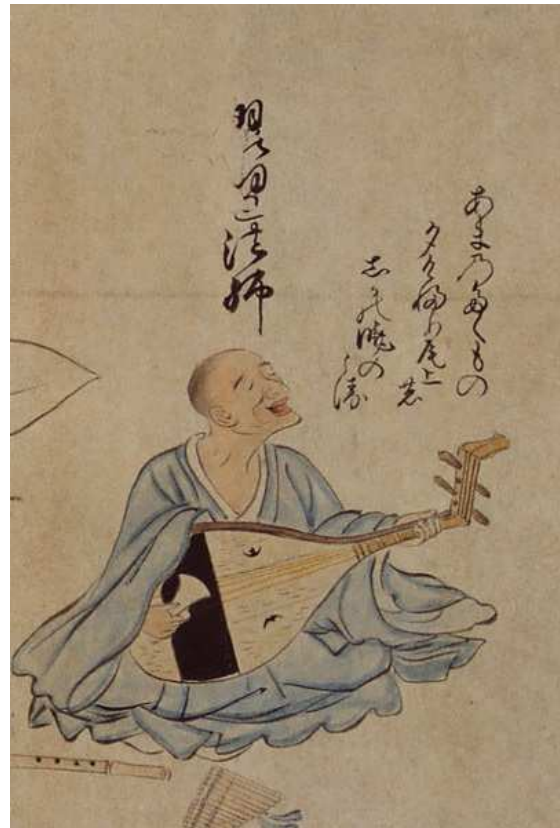 あまのたくもの
夕けふり尾上の
しかの暁の
こゑ
琵琶法師